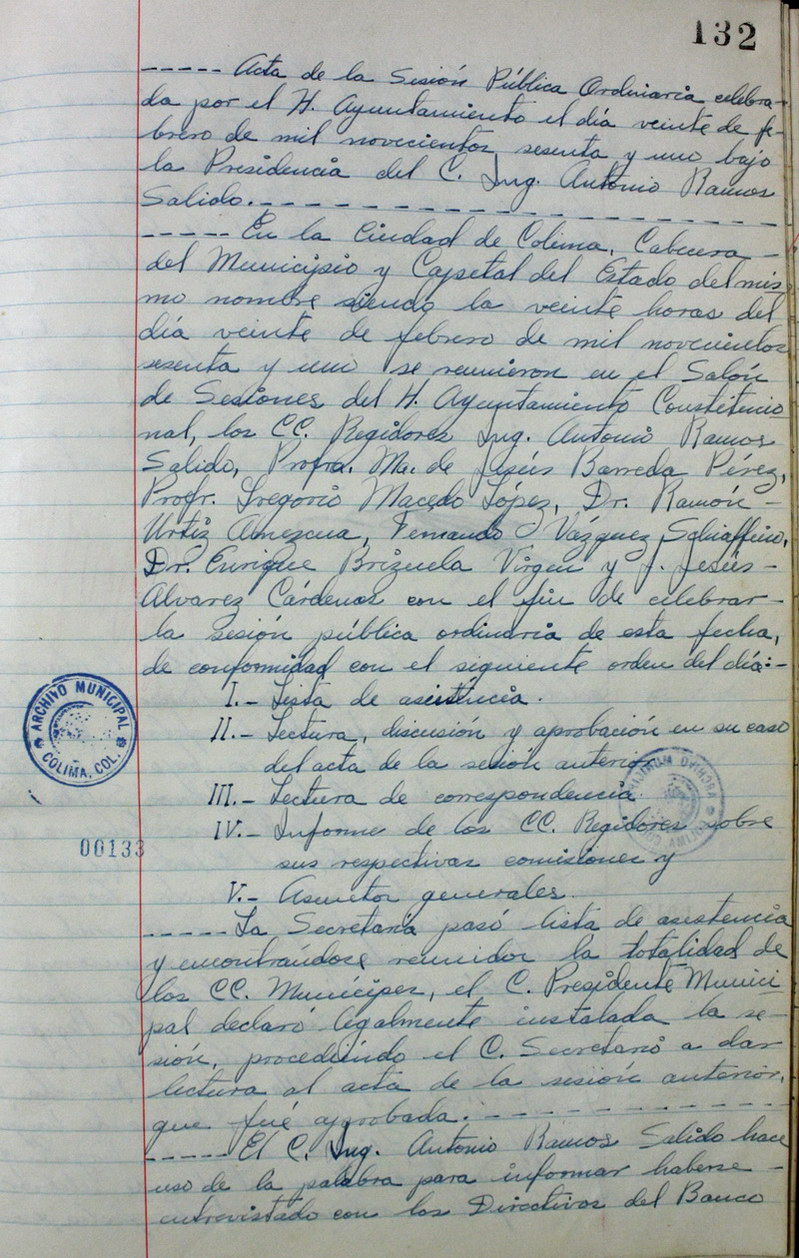 132
----- Acta de la Sesión Pública Ordinaria celebra-
da por el H. Ayuntamiento el día veinte de fe-
brero de mil novecientos sesenta y uno bajo
la Presidencia del C. Ing. Antonio Ramos
Salido.- - - - - - - - - - - - - - - - -
----- En la Ciudad de Colima, Cabecera -
del Municipio y Capital del Estado del mis-
mo nombre siendo la veinte horas del
día veinte de febrero de mil novecientos
sesenta y uno se reunieron en el Salón
de Sesiones del H. Ayuntamiento Constitucio
nal, los CC. Regidores Ing. Antonio Ramos
Salido, Profra. Ma. de Jesús Barreda Pérez,
Profr. Gregorio Macedo López, Dr. Ramón -
Urtiz Amezcua, Fernando Vázquez Schiaffino,
Dr. Enrique Brizuela Virgen y J. Jesús -
Alvarez Cárdenas con el fin de celebrar -
la sesión pública ordinaria de esta fecha,
de conformidad con el siguiente orden del día:-
I.- Lista de asistencia.
II.- Lectura, discusión y aprobación en su caso
del acta de la sesión anterior
III.- Lectura de correspondencia
IV.- Informe de los CC. Regidores sobre
sus respectivas comisiones y
V.- Asuntos generales.
----- La Secretaría pasó lista de asistencia
y encontrándose reunidos la totalidad de
los CC. Munícipes, el C. Presidente Munici
pal declaró legalmente instalada la se-
sión, procediendo el C. Secretario a dar
lectura al acta de la sesión anterior,
que fué aprobada.- - - - - - - - - - - -
----- El C. Ing. Antonio Ramos Salido hace
uso de la palabra para informar haberse -
entrevistado con los Directivos del Banco
ARCHIVO MUNICIPAL
COLIMA, COL.
00133
ARCHIVO MUNICIPAL